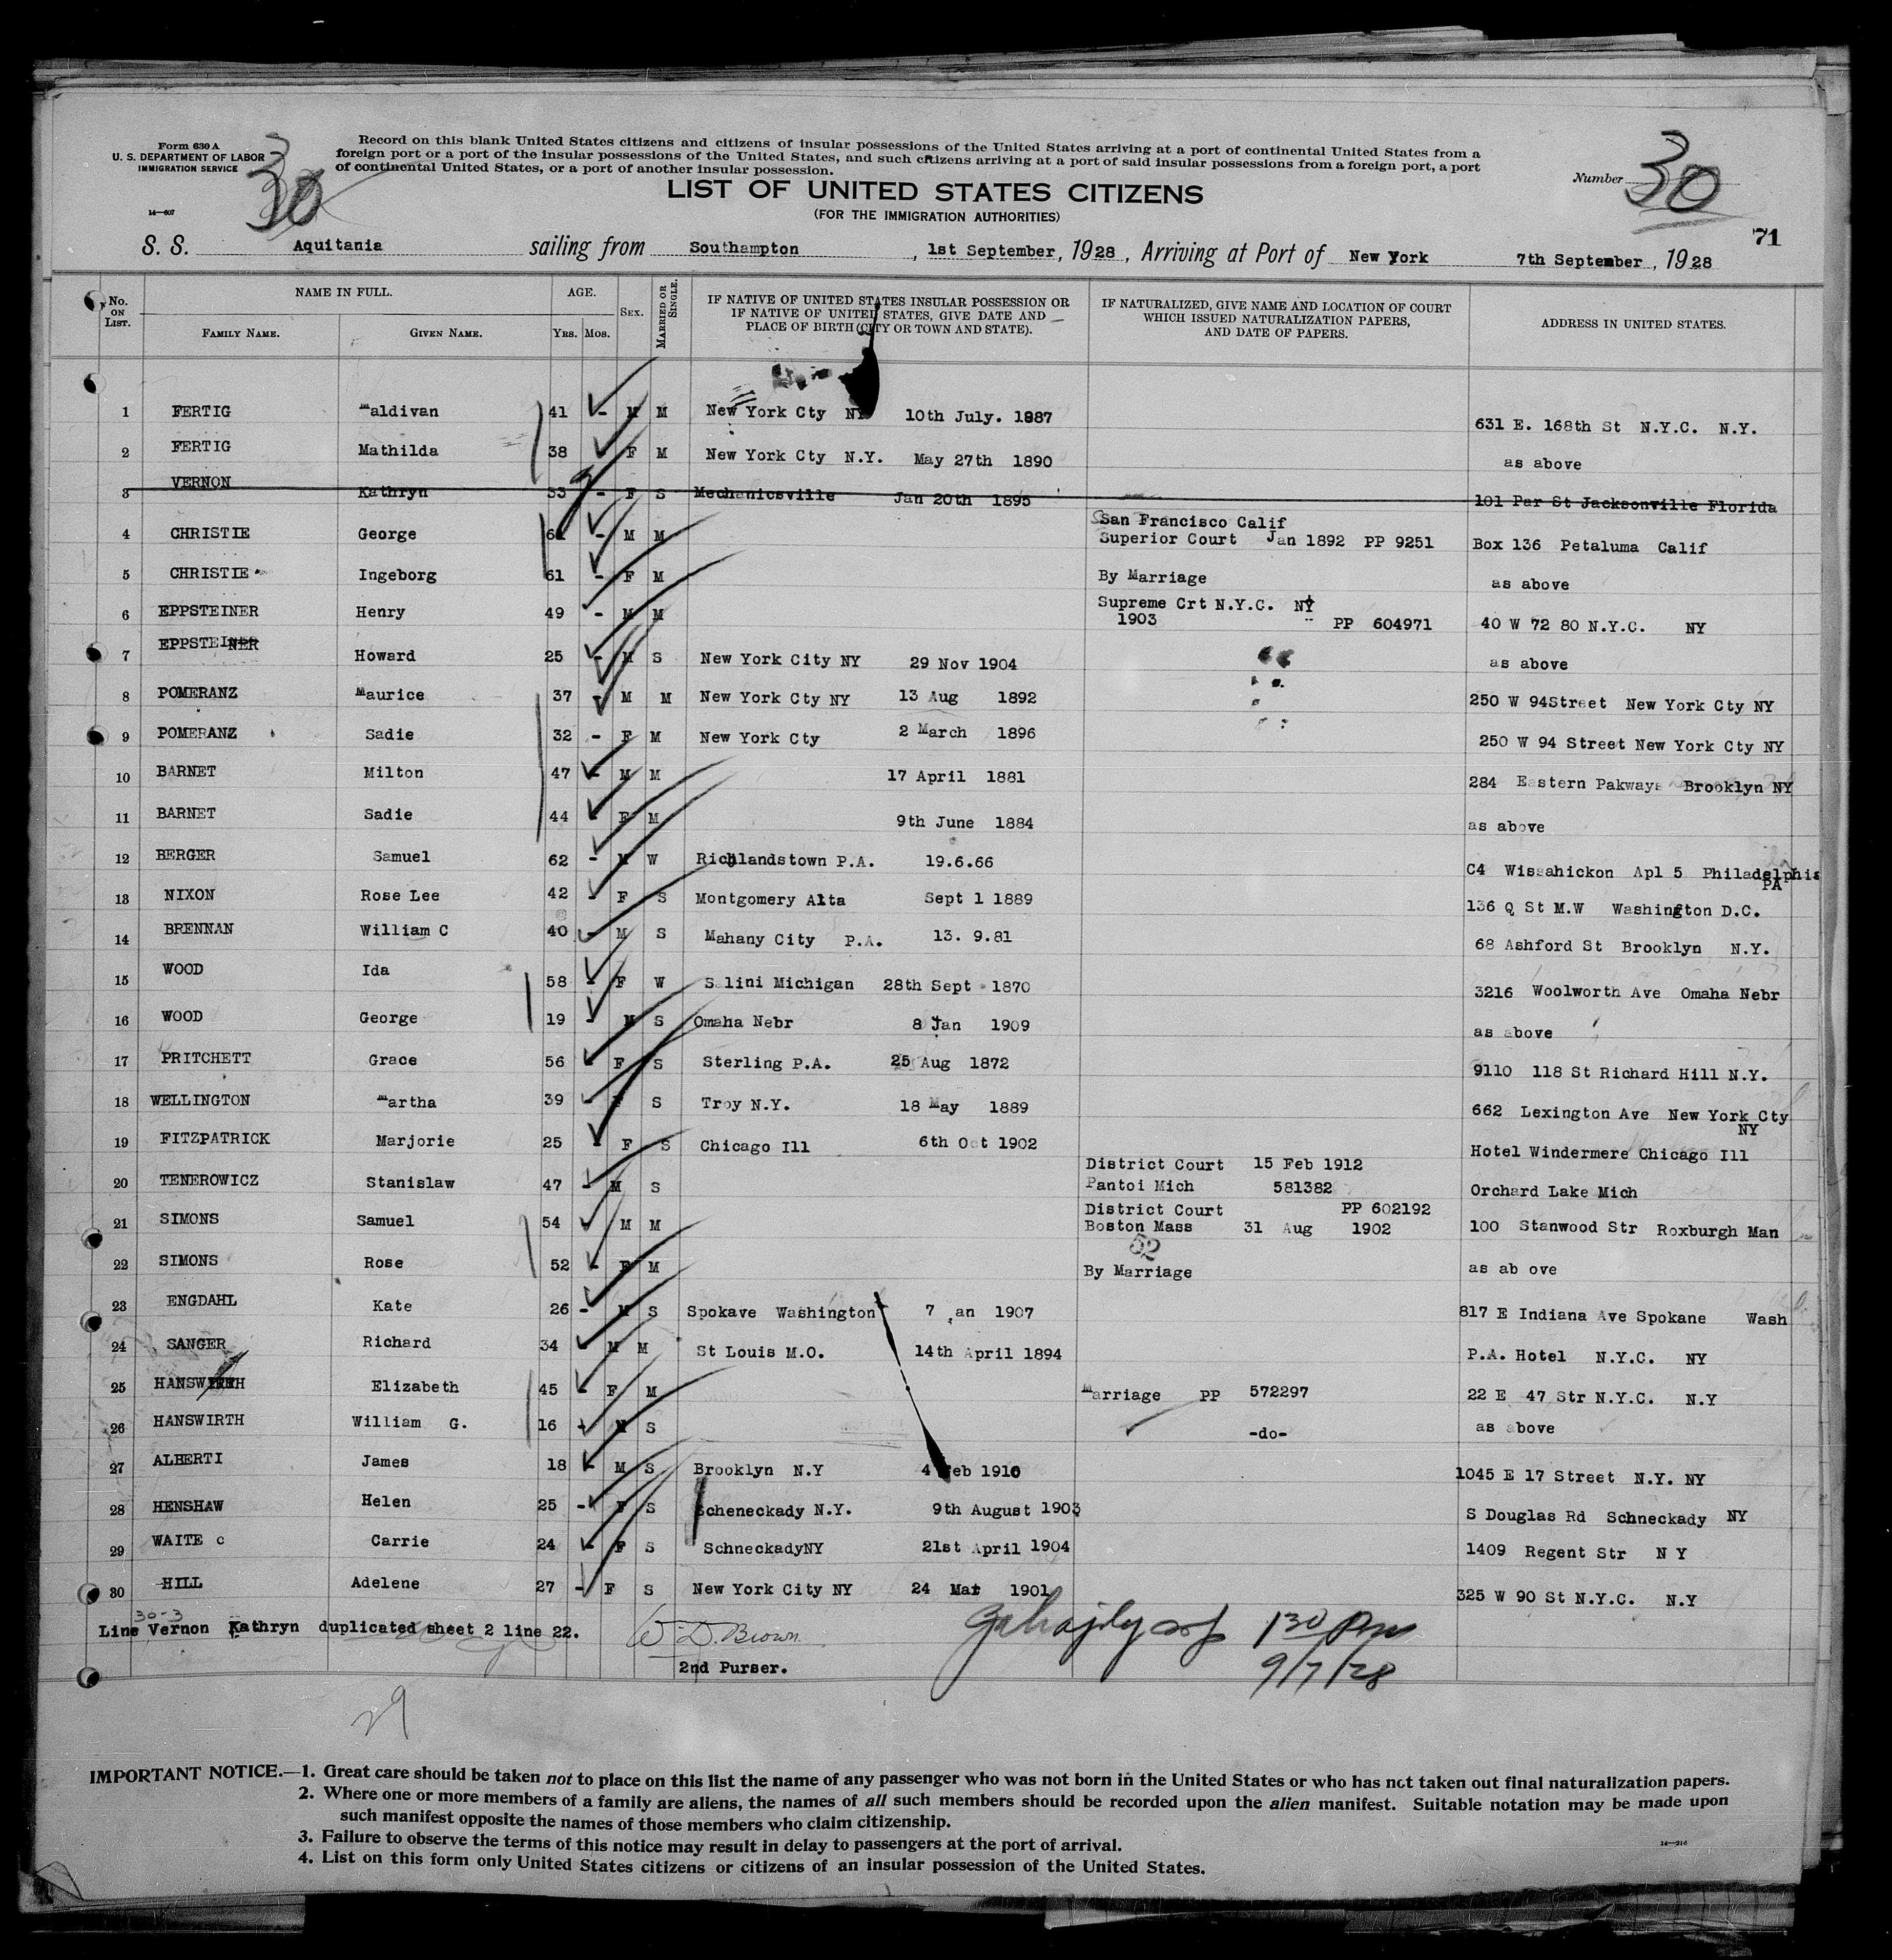 Form 630 A
U. S. DEPARTMENT OF LABOR
IMMIGRATION SERVICE
14—607
30
Record on this blank United States citizens and citizens of insular possessions of the United States arriving at a port of continental United States from a
foreign port or a port of the insular possessions of the United States, and such citizens arriving at a port of said insular possessions from a foreign port, a port
of continental United States, or a port of another insular possession.
LIST OF UNITED STATES CITIZENS
(FOR THE IMMIGRATION AUTHORITIES)
Number 30
71
S. S. Aquitania sailing from Southampton, 1st September, 1928, Arriving at Port of New York 7th September, 1928
No. ON LIST. NAME IN FULL. AGE. SEX. MARRIED OR SINGLE. IF NATIVE OF UNITED STATES INSULAR POSSESSION OR IF NATIVE OF UNITED STATES, GIVE DATE AND PLACE OF BIRTH (CITY OR TOWN AND STATE). IF NATURALIZED, GIVE NAME AND LOCATION OF COURT WHICH ISSUED NATURALIZATION PAPERS, AND DATE OF PAPERS. ADDRESS IN UNITED STATES.
FAMILY NAME. GIVEN NAME. YRS. MOS.
1 FERTIG Maldivan 41 - M M New York Cty NY 10th July. 1887 631 E. 168th St N.Y.C. N.Y.
2 FERTIG Mathilda 38 F M New York Cty N.Y. May 27th 1890 as above
3 VERNON Kathryn 33 - F S Mechanicsville Jan 20th 1895 101 Par St Jacksonville Florida
4 CHRISTIE George - M M San Francisco Calif Superior Court Jan 1892 PP 9251 Box 136 Petaluma Calif
5 CHRISTIE Ingeborg 61 - F M By Marriage as above
6 EPPSTEINER Henry 49 - M M Supreme Crt N.Y.C. NY 1903 PP 604971 40 W 72 80 N.Y.C. NY
7 EPPSTEINER Howard 25 - M S New York City NY 29 Nov 1904 as above
8 POMERANZ Maurice 37 M M New York Cty NY 13 Aug 1892 250 W 94Street New York Cty NY
9 POMERANZ Sadie 32 - F M New York Cty 2 March 1896 250 W 94 Street New York Cty NY
10 BARNET Milton 47 - M M 17 April 1881 284 Eastern Pakways Brooklyn NY
11 BARNET Sadie 44 - F M 9th June 1884 as above
12 BERGER Samuel 62 - M W Richlandstown P.A. 19.6.66 C4 Wissahickon Apl 5 Philadelphia PA
13 NIXON Rose Lee 42 - F S Montgomery Alta Sept 1 1889 136 Q St M.W Washington D.C.
14 BRENNAN William C 40 - M S Mahany City P.A. 13. 9.81 68 Ashford St Brooklyn N.Y.
15 WOOD Ida 58 - F W Salini Michigan 28th Sept 1870 3216 Woolworth Ave Omaha Nebr
16 WOOD George 19 - M S Omaha Nebr 8 Jan 1909 as above
17 PRITCHETT Grace 56 - F S Sterling P.A. 25 Aug 1872 9110 118 St Richard Hill N.Y.
18 WELLINGTON Martha 39 - F S Troy N.Y. 18 May 1889 662 Lexington Ave New York Cty NY
19 FITZPATRICK Marjorie 25 - F S Chicago Ill 6th Oct 1902 Hotel Windermere Chicago Ill
20 TENEROWICZ Stanislaw 47 - M S District Court 15 Feb 1912 Pantoi Mich 581382 Orchard Lake Mich
21 SIMONS Samuel 54 - M M District Court PP 602192 Boston Mass 31 Aug 1902 100 Stanwood Str Roxburgh Man
52
22 SIMONS Rose 52 - F M By Marriage as ab ove
23 ENGDAHL Kate 26 - M S Spokave Washington 7 an 1907 817 E Indiana Ave Spokane Wash
24 SANGER Richard 34 - M M St Louis M.O. 14th April 1894 P.A. Hotel N.Y.C. NY
25 HANSWIRTH Elizabeth 45 - F M Marriage PP 572297 22 E 47 Str N.Y.C. N.Y
26 HANSWIRTH William G. 16 - M S -do- as above
27 ALBERTI James 18 - M S Brooklyn N.Y 4 Feb 1910 1045 E 17 Street N.Y. NY
28 HENSHAW Helen 25 - F S Scheneckady N.Y. 9th August 1903 S Douglas Rd Schneckady NY
29 WAITE c Carrie 24 - F S SchneckadyNY 21st April 1904 1409 Regent Str N Y
30 HILL Adelene 27 - F S New York City NY 24 Mar 1901 325 W 90 St N.Y.C. N.Y
30-3
Line Vernon Kathryn duplicated sheet 2 line 22.
W. D. Brown
2nd Purser.
130 Pm
9/7/28
29
IMPORTANT NOTICE.—1. Great care should be taken not to place on this list the name of any passenger who was not born in the United States or who has not taken out final naturalization papers.
2. Where one or more members of a family are aliens, the names of all such members should be recorded upon the alien manifest. Suitable notation may be made upon
such manifest opposite the names of those members who claim citizenship.
3. Failure to observe the terms of this notice may result in delay to passengers at the port of arrival.
4. List on this form only United States citizens or citizens of an insular possession of the United States.
14—214